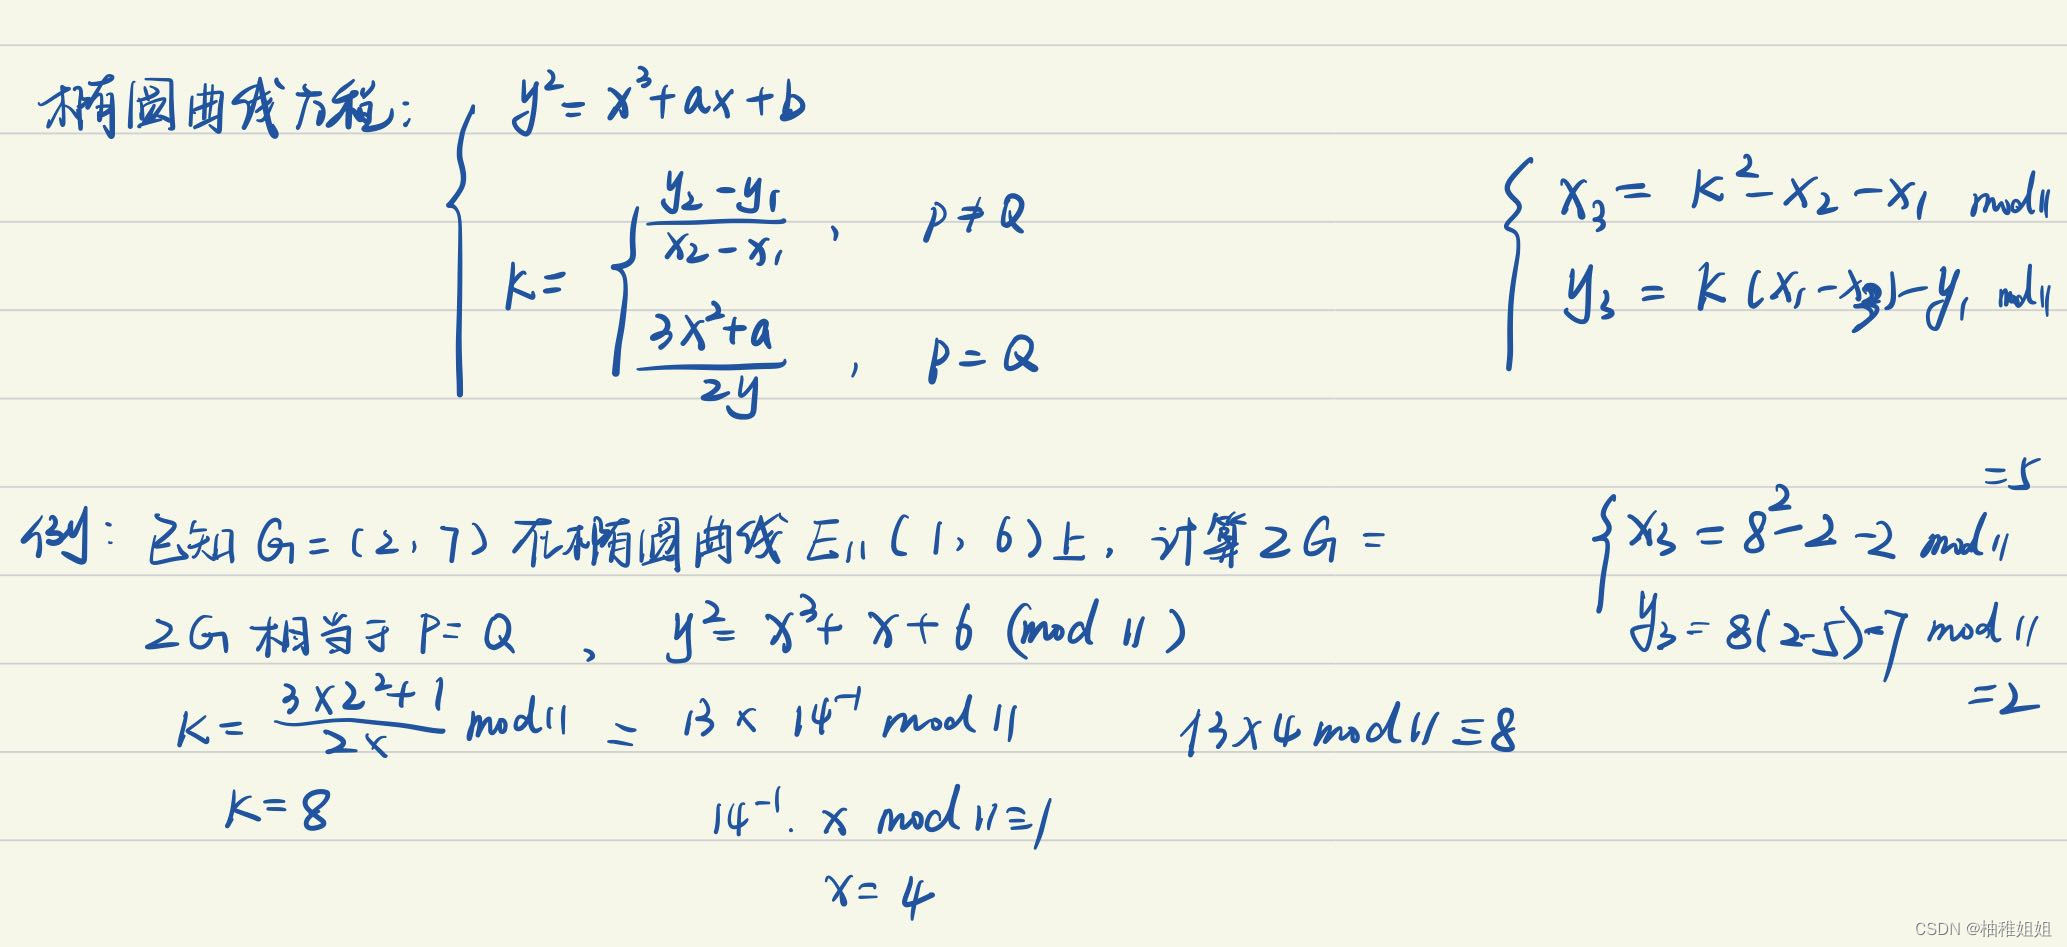 椭圆曲线方程: y² = x³ + ax + b
k = { (y₂ - y₁)/(x₂ - x₁), P ≠ Q
(3x² + a)/2y, P = Q
x₃ = k² - x₂ - x₁ mod 11
y₃ = k(x₁ - x₃) - y₁ mod 11
例: 已知 G = (2, 7) 在椭圆曲线 E₁₁(1, 6)上, 计算 2G =
2G 相当于 P = Q , y² = x³ + x + 6 (mod 11)
k = (3×2² + 1)/2× mod 11 = 13 × 14⁻¹ mod 11 13×4 mod 11 ≡ 8
k = 8 14⁻¹. x mod 11 ≡ 1
x = 4
x₃ = 8² - 2 - 2 mod 11 = 5
y₃ = 8(2-5) - 7 mod 11
= 2
CSDN @柚稚姐姐